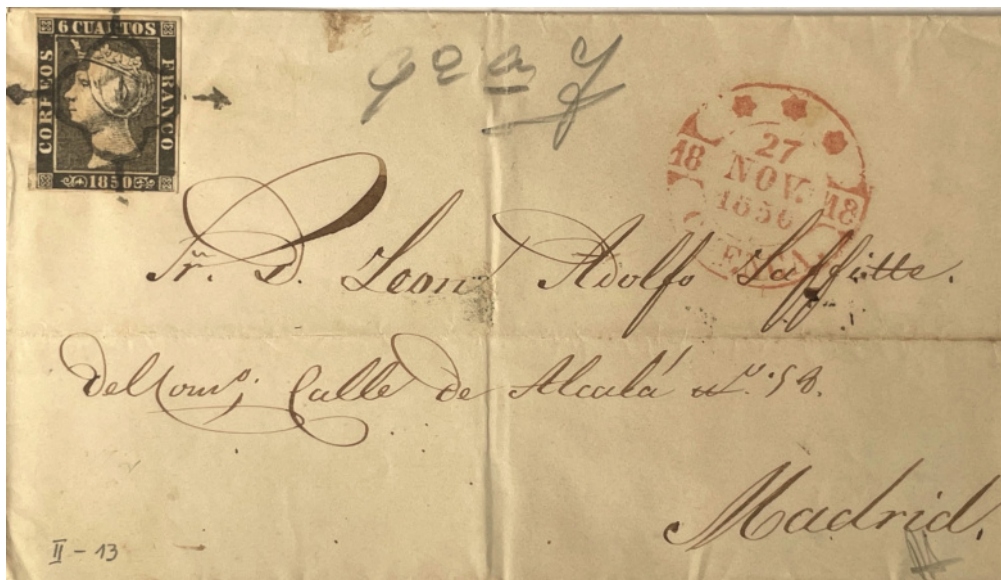 6 CUARTOS
CORREOS
FRANCO
1850
18
27
NOV.
1850
18
Sr. D. Leon Adolfo Laffitte.
del Com.o; Calle de Alcalá n.o 58.
Madrid.
II - 13